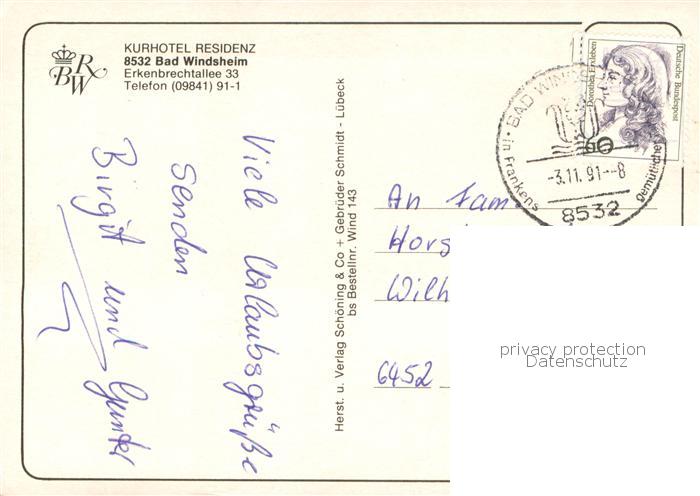 KURHOTEL RESIDENZ
8532 Bad Windsheim
Erkenbrechtallee 33
Telefon (09841) 91-1
RBW
Viele Urlaubsgrüße
senden
Birgit und Gunter
Herst. u. Verlag Schöning & Co + Gebrüder Schmidt - Lübeck
bs Bestellnr. Wind 143
Dorothea Erxleben
Deutsche Bundespost
60
BAD WINDS
in Frankens
gemütlicher
-3.11.91--8
8532
An Fam
Hors
Wilh
6452
privacy protection
Datenschutz